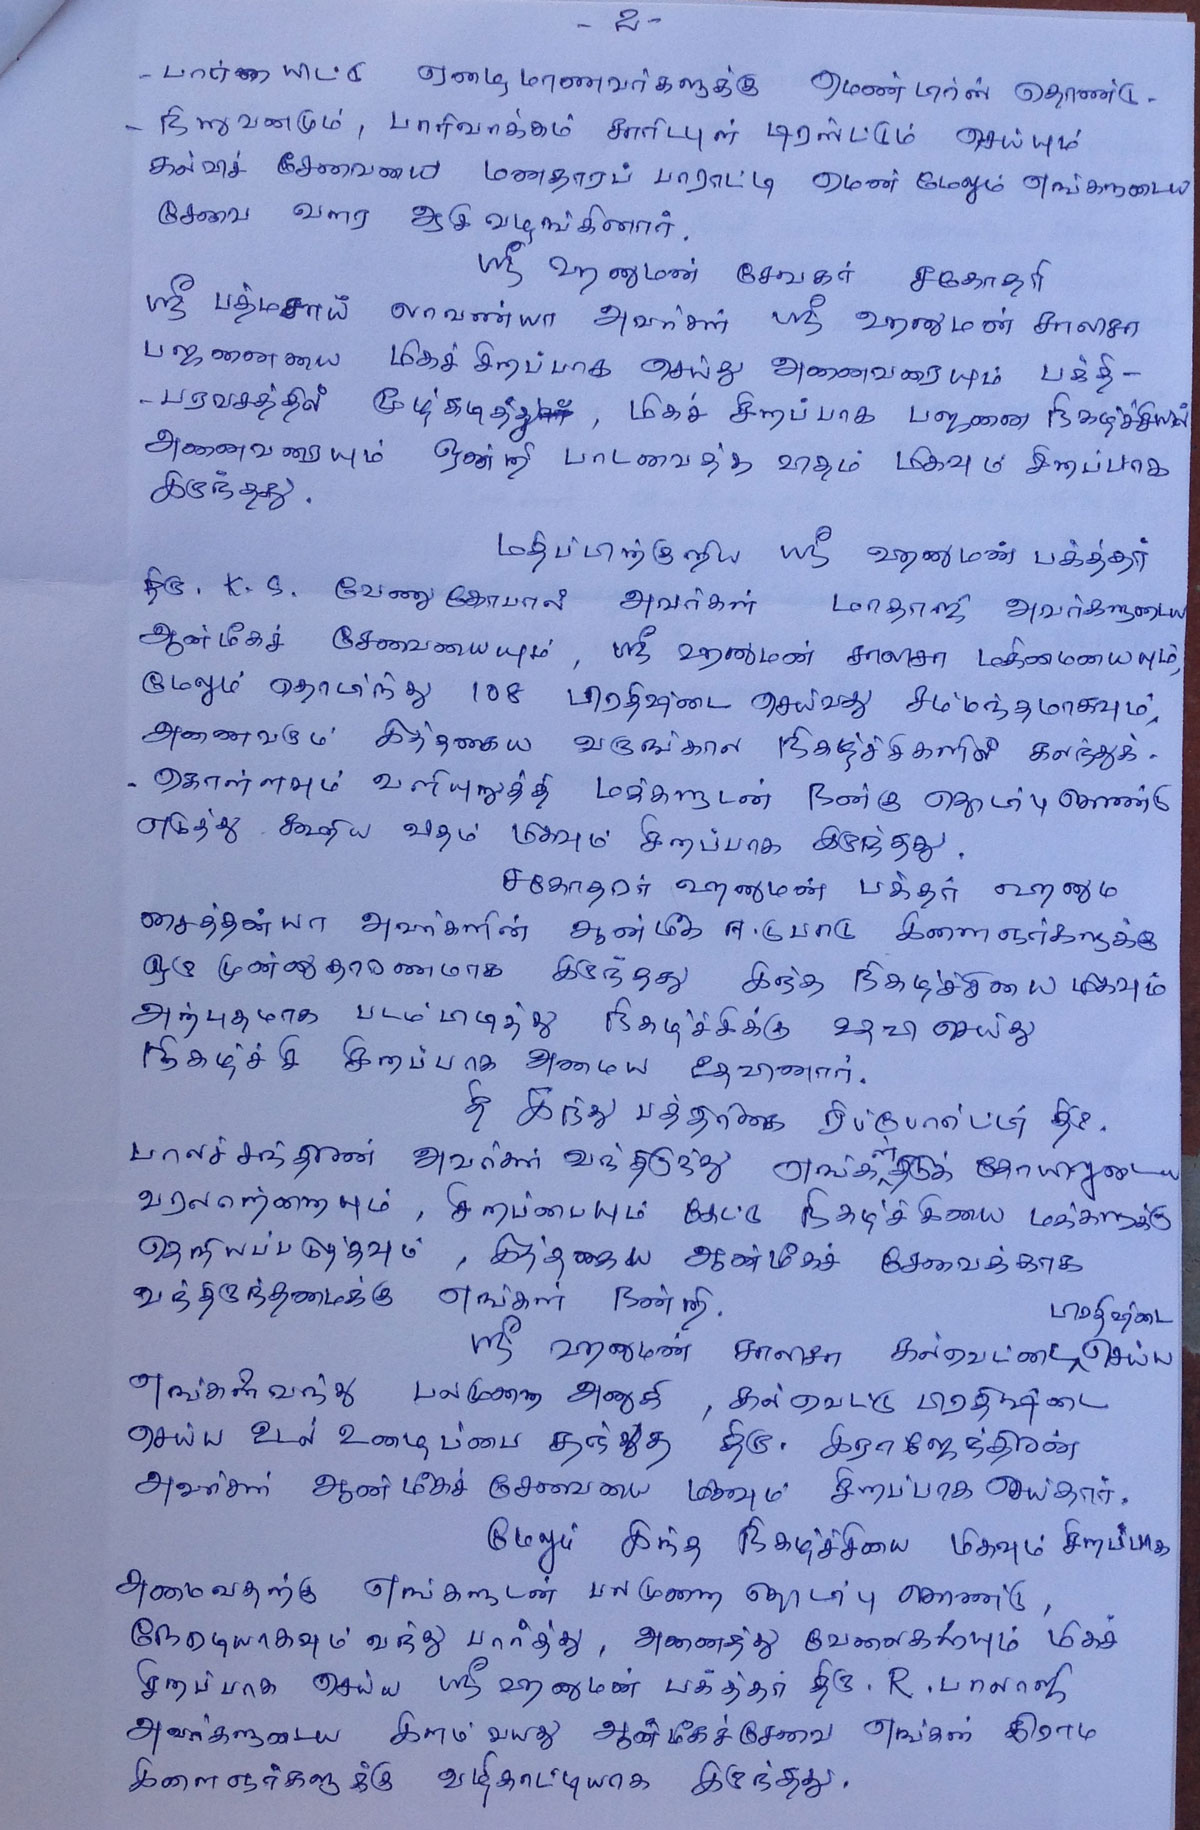 - 2 -
- பார்வையிட்டு ஏழைமாணவர்களுக்கு தொண்டு -
- நிறுவனமும், பாரிவாக்கம் சாரிடபுள் டிரஸ்ட்டும் செய்யும்
கல்விச் சேவையை மனதாரப் பாராட்டி மென் மேலும் எங்களுடைய
சேவை வளர ஆசி வழங்கினார்.
ஸ்ரீ ஹனுமன் சேவகர் சகோதரி
ஸ்ரீ பத்மசாய் லாவண்யா அவர்கள் ஸ்ரீ ஹனுமன் சாலிசா
பஜனையை மிகச் சிறப்பாக செய்து அனைவரையும் பக்தி -
- பரவசத்தில் மூழ்கடித்து, மிகச் சிறப்பாக பஜனை நிகழ்ச்சியில்
அனைவரையும் ஒன்றி பாடவைத்த விதம் மிகவும் சிறப்பாக
இருந்தது.
மதிப்பிற்குறிய ஸ்ரீ ஹனுமன் பக்த்தர்
திரு. K. S. வேணுகோபால் அவர்கள் மாதாஜி அவர்களுடைய
ஆன்மீகச் சேவையையும், ஸ்ரீ ஹனுமன் சாலிசா மகிமையையும்,
மேலும் தொடர்ந்து 108 பிரதிஷ்டை செய்வது சம்மந்தமாகவும்,
அனைவரும் இத்தகைய வருங்கால நிகழ்ச்சிகளில் கலந்துக் -
- கொள்ளவும் வலியுறுத்தி மக்களுடன் நன்கு தொடர்பு கொண்டு
எடுத்து கூறிய விதம் மிகவும் சிறப்பாக இருந்தது.
சகோதரர் ஹனுமன் பக்தர் ஹனும
சைத்தன்யா அவர்களின் ஆன்மீக ஈடுபாடு இளைஞர்களுக்கு
ஒரு முன்னுதாரணமாக இருந்தது இந்த நிகழ்ச்சியை மிகவும்
அற்புதமாக படம்பிடித்து நிகழ்ச்சிக்கு உதவி செய்து
நிகழ்ச்சி சிறப்பாக அமைய உதவினார்.
தி இந்து பத்திரிகை ரிப்போர்ட்டர் திரு.
பாலச்சந்திரன் அவர்கள் வந்திருந்து எங்கள் கோயிலுடைய
வரலாற்றையும், சிறப்பையும் கேட்டு நிகழ்ச்சியை மக்களுக்கு
தெறியப்படுத்தவும், இத்தகைய ஆன்மீகச் சேவைக்காக
வந்திருந்தமைக்கு எங்கள் நன்றி.
ஸ்ரீ ஹனுமன் சாலிசா கல்வெட்டை பிரதிஷ்டை செய்ய
எங்களிவந்து பலமுறை அணுகி, கல்வெட்டு பிரதிஷ்டை
செய்ய உடல் உழைப்பை தந்த திரு. இராஜேந்திரன்
அவர்கள் ஆன்மீகச் சேவையை மிகவும் சிறப்பாக செய்தார்.
மேலும் இந்த நிகழ்ச்சியை மிகவும் சிறப்பாக
அமைவதற்கு எங்களுடன் பலமுறை தொடர்பு கொண்டு,
நேரடியாகவும் வந்து பார்த்து, அனைத்து வேலைகளையும் மிகச்
சிறப்பாக செய்ய ஸ்ரீ ஹனுமன் பக்த்தர் திரு. R. பாலாஜி
அவர்களுடைய இளம் வயது ஆன்மீகச் சேவை எங்கள் கிராம
இளைஞர்களுக்கு வழிகாட்டியாக இருந்தது.